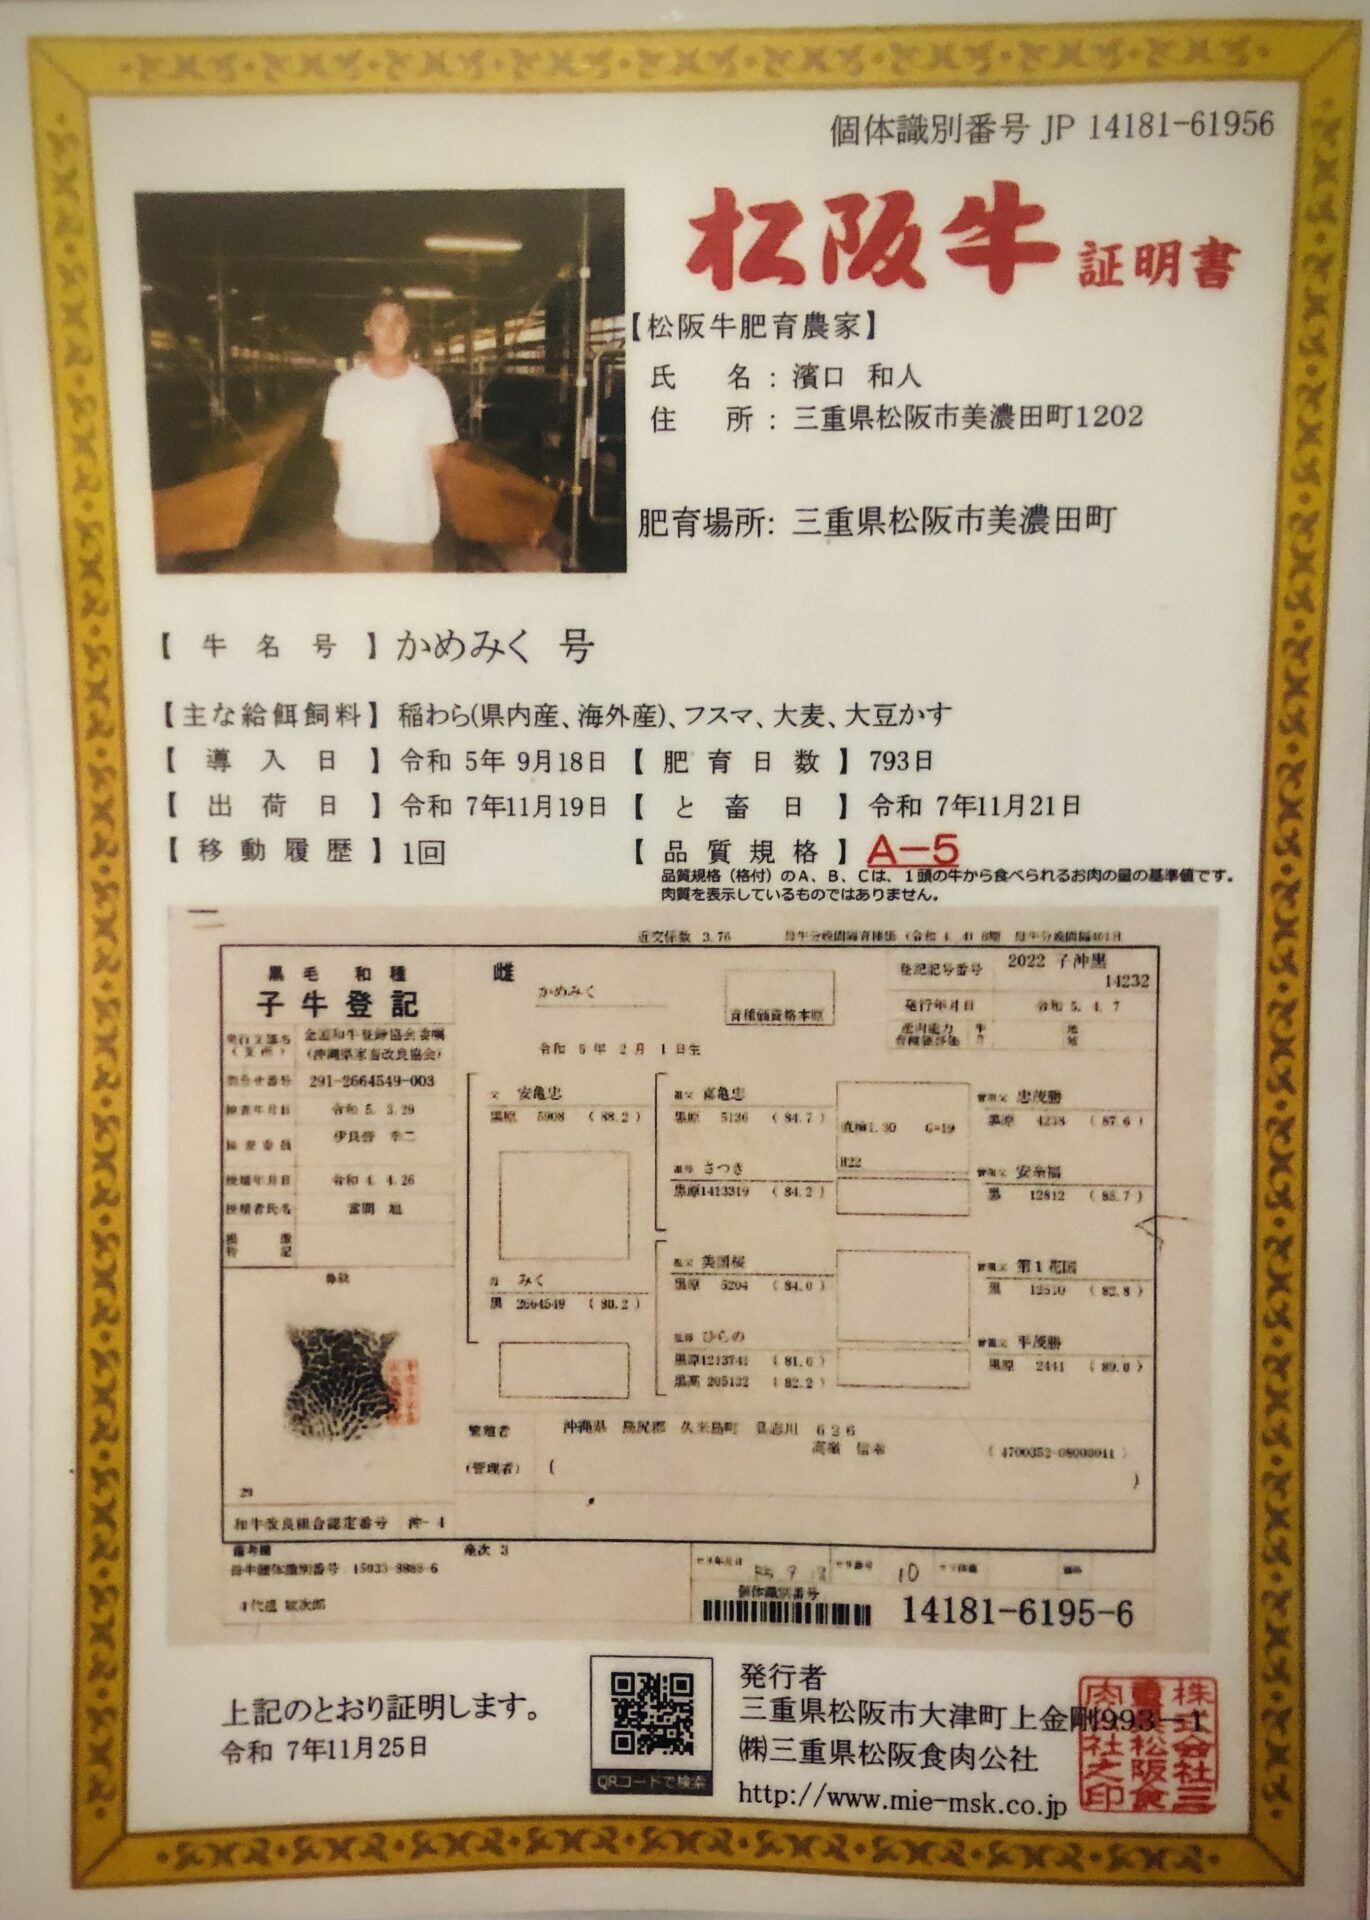 個体識別番号 JP 14181-61956
松阪牛 証明書
【松阪牛肥育農家】
氏 名 : 濱口 和人
住 所 : 三重県松阪市美濃田町1202
肥育場所: 三重県松阪市美濃田町
【牛名号】かめみく 号
【主な給餌飼料】稲わら(県内産、海外産)、フスマ、大麦、大豆かす
【導入日】令和 5年 9月18日 【肥育日数】793日
【出荷日】令和 7年11月19日 【と畜日】令和 7年11月21日
【移動履歴】1回 【品質規格】A-5
品質規格(格付)のA、B、Cは、1頭の牛から食べられるお肉の量の基準値です。
肉質を表示しているものではありません。
近交係数 3.76
黒毛和種 雌 かめみく 登記記号番号 2022 子沖黒
子牛登記 14232
育種価資格本原 発行年月日 令和 5. 4. 7
全国和牛登録協会委嘱
(沖縄県家畜改良協会)
令和 5 年 2 月 1 日生
291-2664549-003
検査年月日 令和 5. 3. 29
検査委員
授精年月日 令和 4. 4. 26
授精者氏名 當間 旭
父 安亀忠
黒原 5908 (88.2)
祖父 喜亀忠
黒原 5136 (84.7)
曾祖父 忠茂勝
黒原 4238 (87.6)
祖母 さつき
黒原1413319 (84.2)
曾祖父 安糸福
黒 12812 (85.7)
母 みく
黒 2664549 (80.2)
祖父 美国桜
黒原 5204 (84.0)
曾祖父 第1花国
黒 12510 (82.8)
祖母 ひらの
黒原1213741 (81.6)
黒高 205132 (82.2)
曾祖父 平茂勝
黒原 2441 (89.0)
鼻紋
繁殖者 沖縄県 島尻郡 久米島町 具志川 626
高嶺 信幸
(管理者) ( )
29
和牛改良組合認定番号 沖-4
備考欄 産次 3
母牛個体識別番号 15033-9885-6
個体識別番号
14181-6195-6
上記のとおり証明します。
令和 7年11月25日
QRコードで検索
発行者
三重県松阪市大津町上金剛993-1
㈱三重県松阪食肉公社
http://www.mie-msk.co.jp
株式会社三重県松阪食肉公社之印